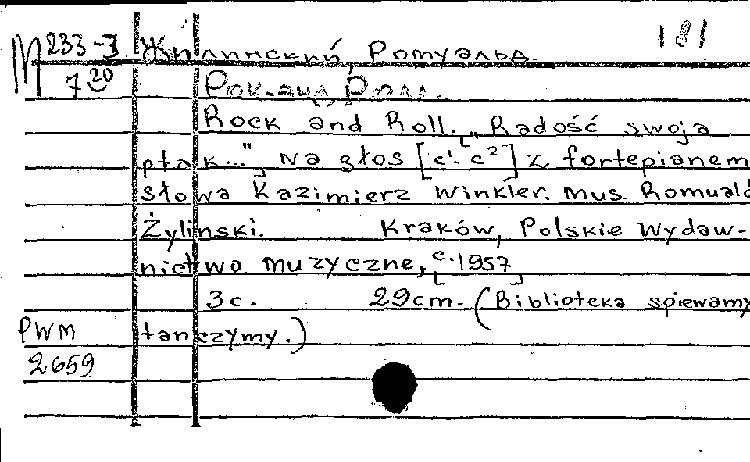 М 233-3 Жилинский, Ромуальд. 181
7 20 Рок-энд Ролл.
Rock and Roll. „Radość swoja
ptak...", Na głos [c¹-c²] z fortepianem
słowa Kazimierz Winkler. Mus Romuald
Żyliński. Kraków, Polskie Wydaw-
nictwo Muzyczne, [c.1957]
3 c. 29 cm. (Biblioteka śpiewamy
PWM tańczymy.)
2659